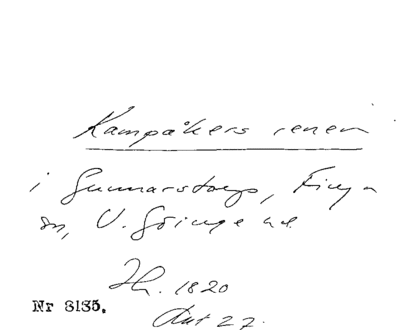 Kampåkers renen
i Gunnarstorp, Finja
sn, V. Göinge hd.
Hr. 1820
Aut 27.
Nr 8135.